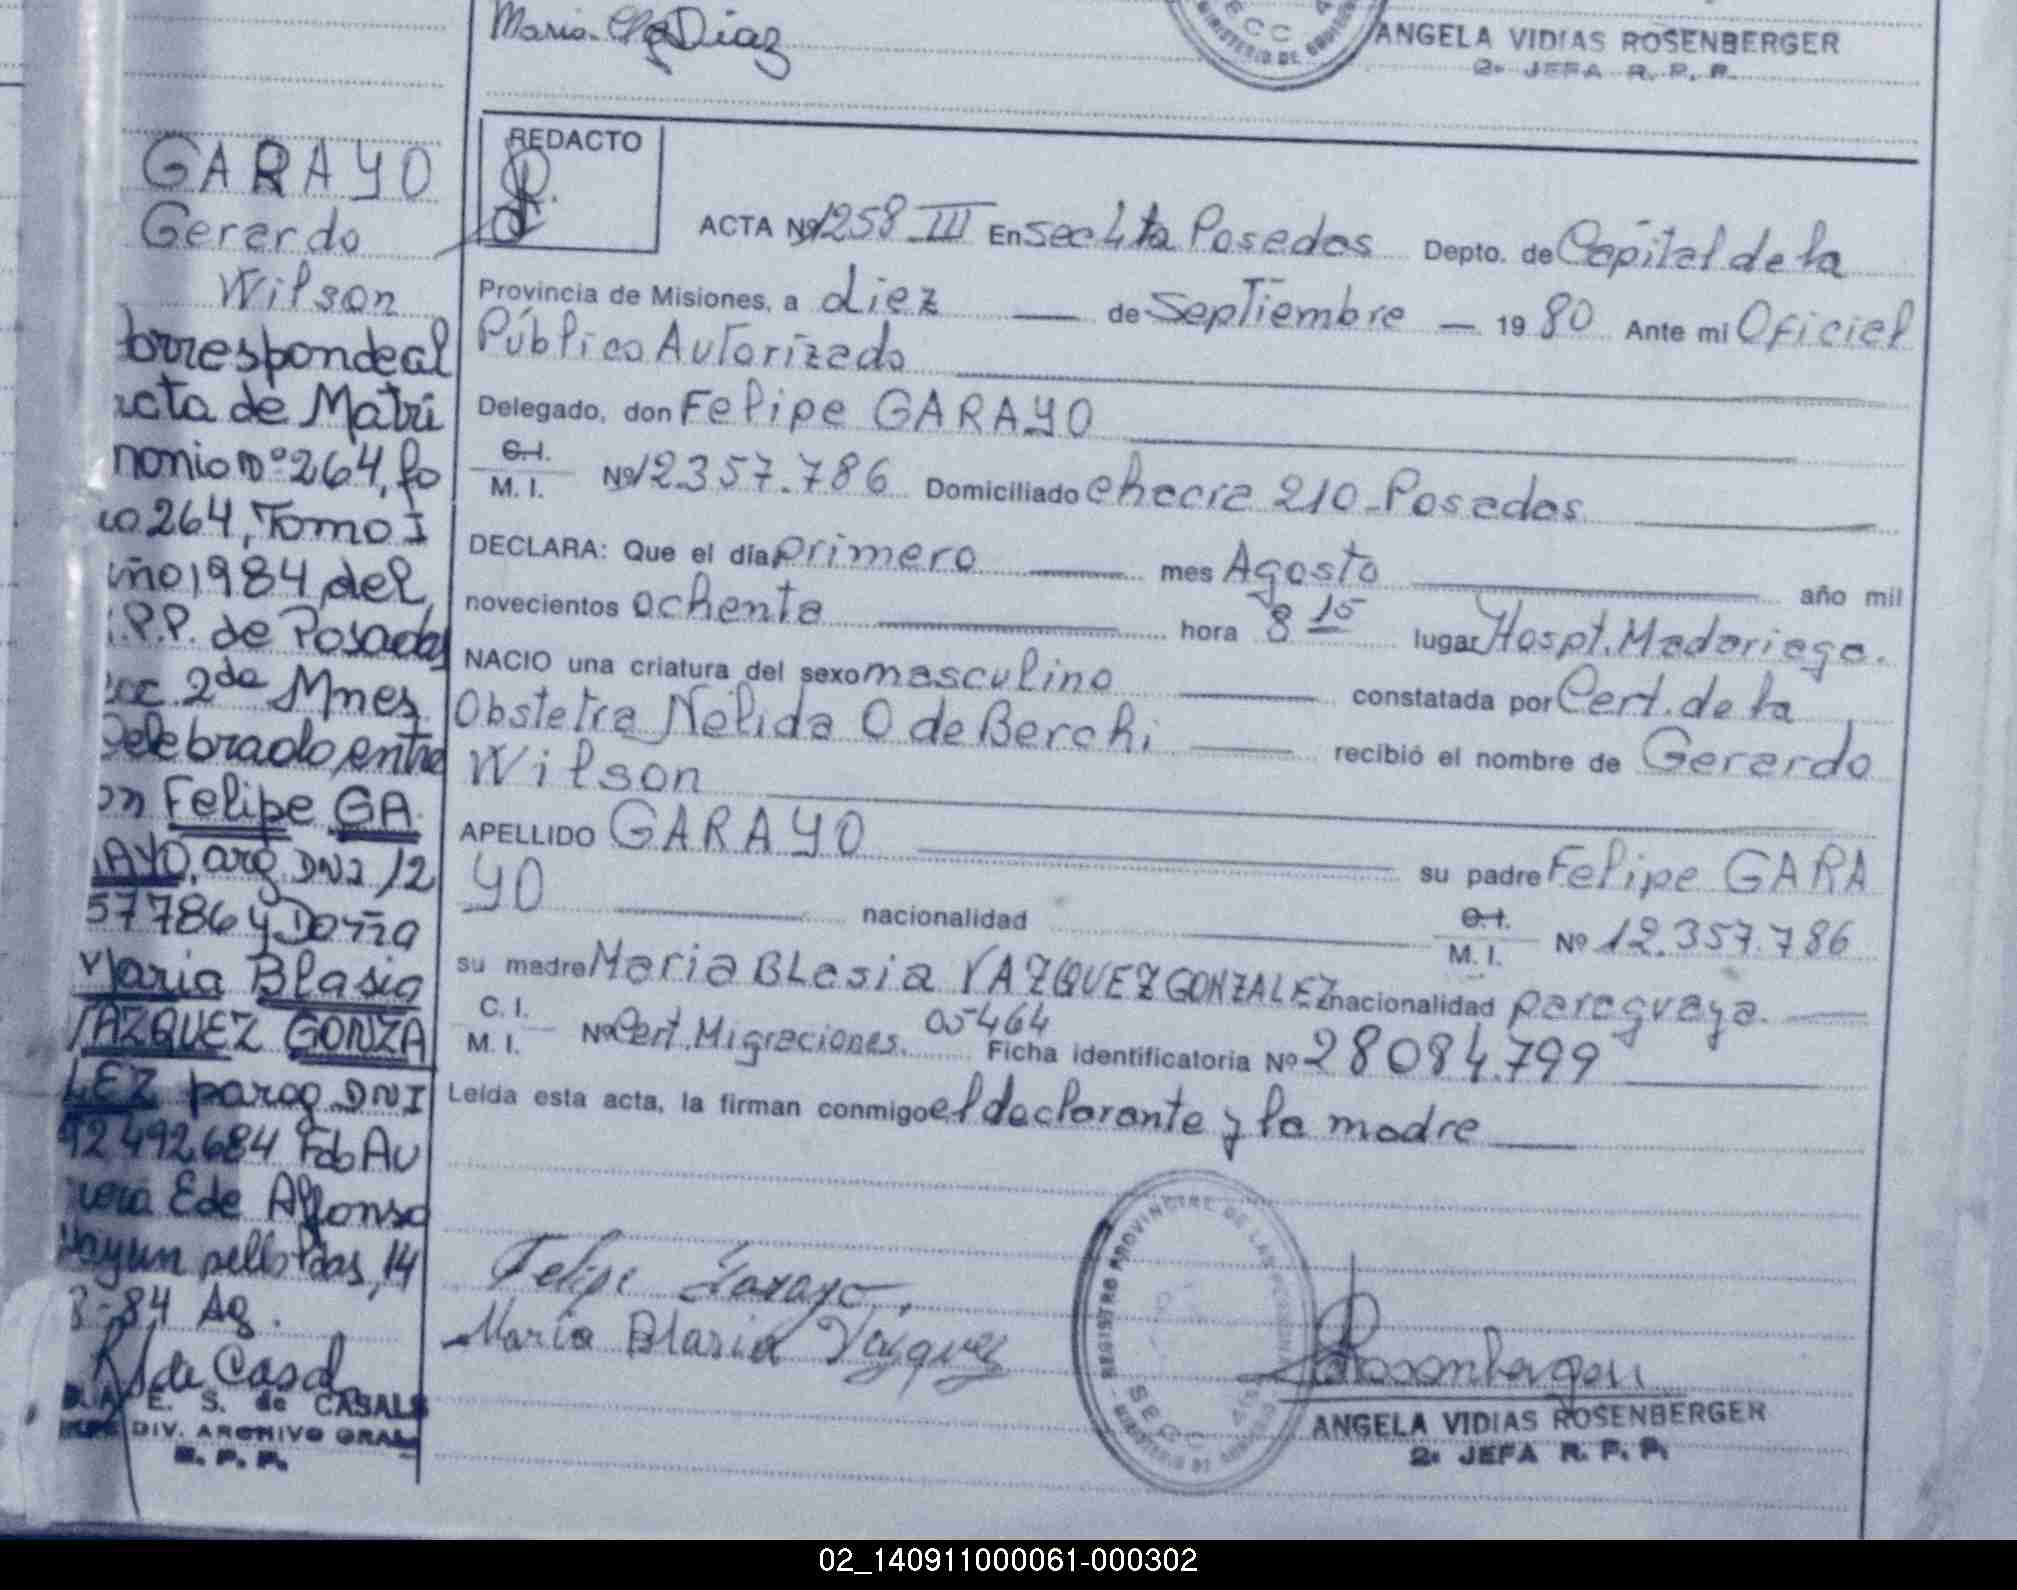 Maria Diaz
ANGELA VIDIAS ROSENBERGER
2a JEFA R. P. P.
GARAYO
Gerardo
Wilson
orrespondeal
acta de Matri
monio Nº 264, fo
io 264, Tomo I
año 1984 del
.P.P. de Posadas
ecc. 2da Mnes
Celebrado entre
on Felipe GA
RAYO, arg. DNI 12
357786 y Doña
Maria Blasia
VAZQUEZ GONZA
LEZ parag. DNI
92492684 Fdo Au
rera E de Alfonso
sellos tdos, 14
8-84 Ag.
de Casal
E. S. de CASALS
DIV. ARCHIVO GRAL
R. P. P.
REDACTO
ACTA Nº 1258 III En Sec 4ta Posadas Depto. de Capital de la
Provincia de Misiones, a diez — de Septiembre — 1980 Ante mi Oficial
Público Autorizado
Delegado, don Felipe GARAYO
C.I.
M. I. Nº 12.357.786 Domiciliado chacra 210-Posadas
DECLARA: Que el día primero — mes Agosto — año mil
novecientos ochenta — hora 8 15 lugar Hospt. Madariaga.
NACIO una criatura del sexo masculino — constatada por Cert. de la
Obstetra Nélida O de Berchi — recibió el nombre de Gerardo
Wilson
APELLIDO GARAYO — su padre Felipe GARA
YO — nacionalidad — C.I.
M. I. Nº 12.357.786
su madre Maria Blasia VAZQUEZ GONZALEZ nacionalidad paraguaya. —
C. I.
M. I. Nº Cert. Migraciones. 05464 Ficha identificatoria Nº 28084.799
Leída esta acta, la firman conmigo el declarante y la madre
Felipe Garayo
Maria Blasia Vázquez
REGISTRO PROVINCIAL DE LAS PERSONAS
SECC. 4a
Rosenberger
ANGELA VIDIAS ROSENBERGER
2a JEFA R. P. P.
02_140911000061-000302